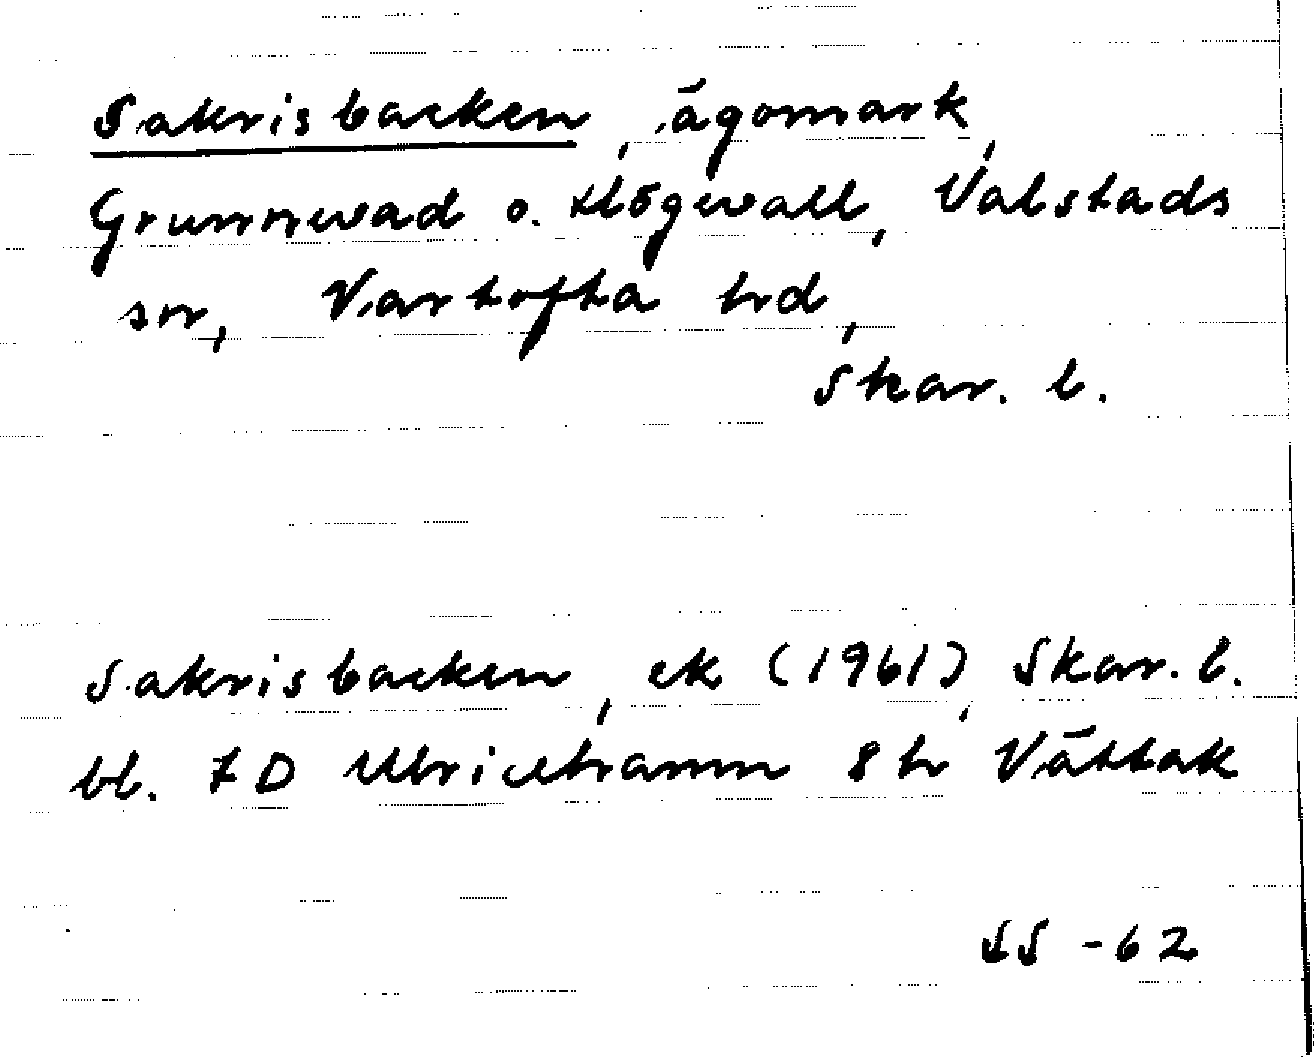 Sakrisbacken, ägomark,
Grunnevad o. Högevall, Valstads
sn, Vartofta hd,
Skar. l.
Sakrisbacken, ek (1961), Skar. l.
bl. 7D Ulricehamn 8 h Vättak
SS -62